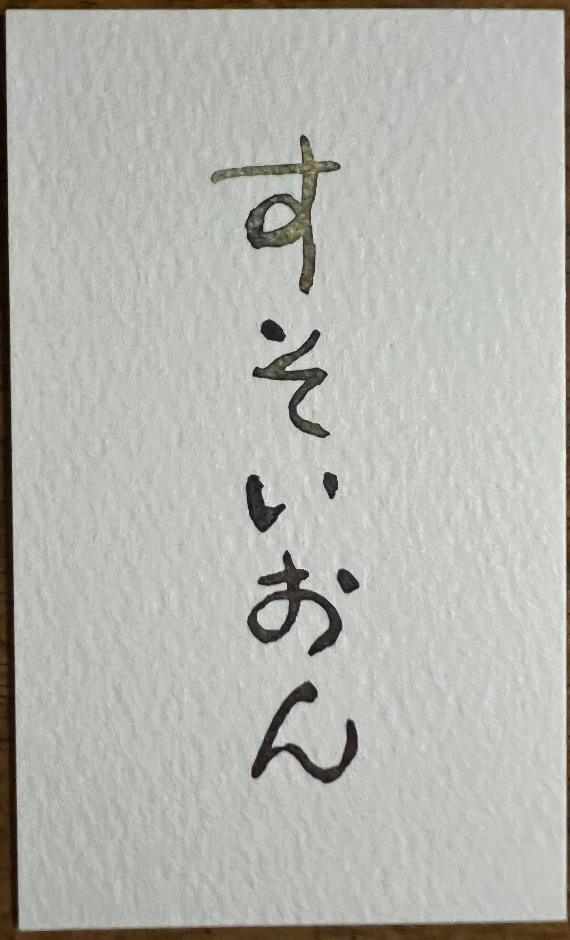 すそいおん